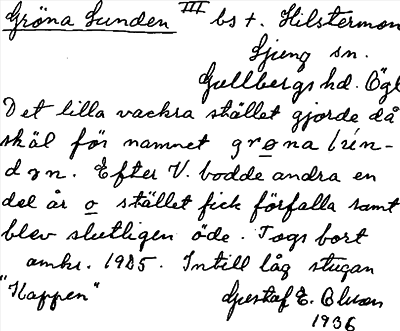 Gröna Lunden III bs t. Hilstermon
Ljung sn.
Gullbergs hd. Ögl
Det lilla vackra stället gjorde då
skäl för namnet grøna lun-
dən. Efter V. bodde andra en
del år o stället fick förfalla samt
blev slutligen öde. Togs bort
omkr. 1925. Intill låg stugan
"Kappen" Gustaf E.
1936